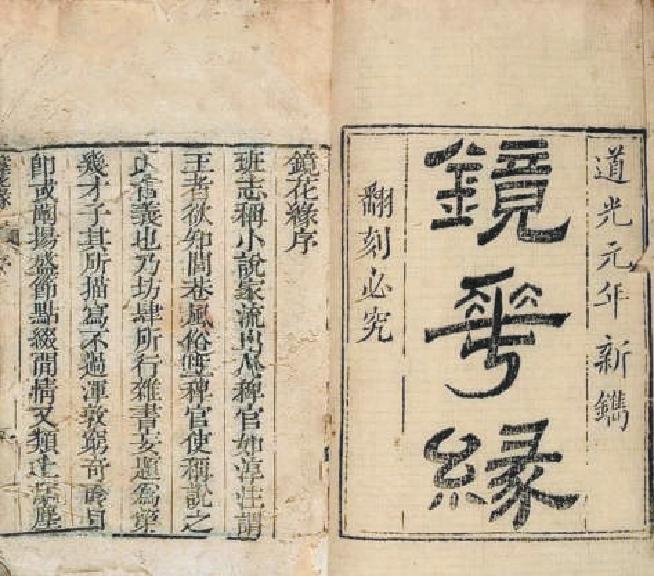 道光元年新鐫
鏡華緣
翻刻必究
鏡花緣序
班志稱小說家流出於稗官如淳注謂
王者欲知閭巷風俗立稗官使稱說之
舊義也乃坊肆所行雜書妄題為第
幾才子其所描寫不過渾敦窮奇面目
即或闡揚盛節點綴閒情又類土飯塵